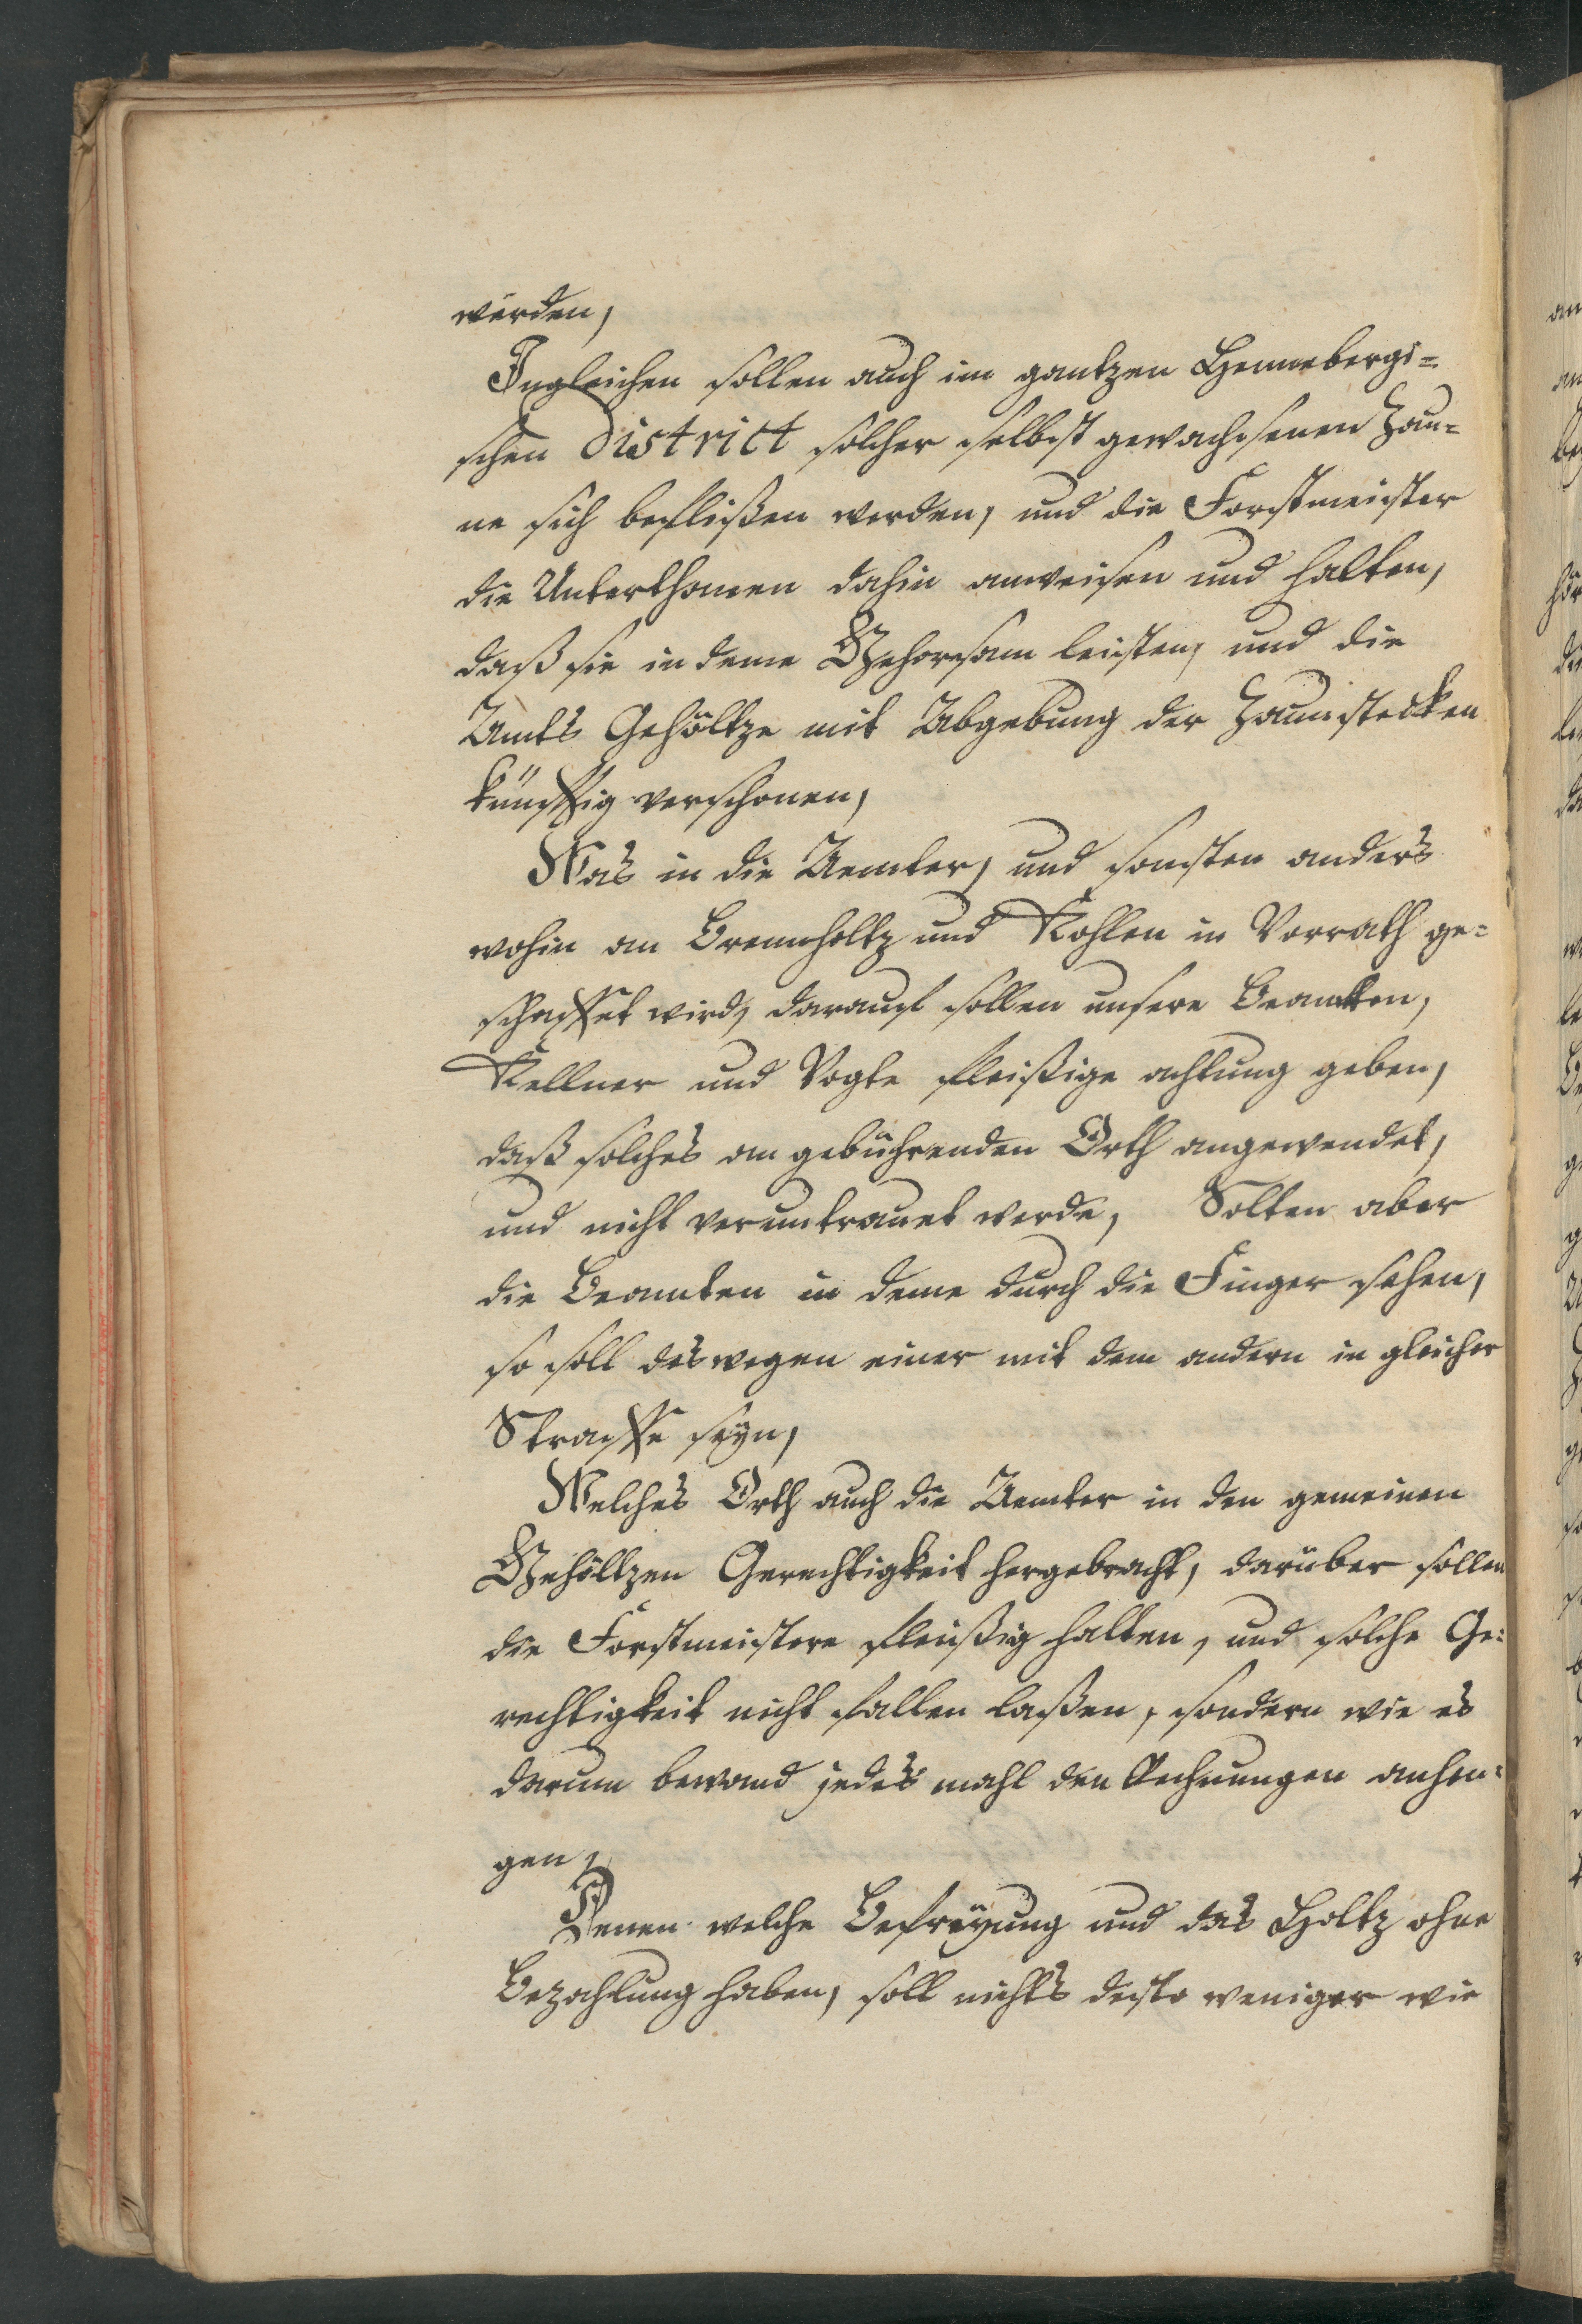 würden,
Ingleichen sollen auch im gantzen Hennebergi=
schen District solcher selbst gewachsenen Zau=
ne sich befleißen werden, und die Forstmeister
die Unterthanen dahin anweisen und halten,
daß sie in deme Gehorsam leisten, und die
Amts Gehöltze mit Abgebung der Zaunstecken
künfftig verschonen,
Was in die Aemter, und sonsten anders
wohin an Brennholtz und Kohlen in Vorrath ge=
schaffet wird, darauf sollen unsere Beamten,
Kellner und Vogte fleißige achtung geben,
daß solches an gebührenden Orth angewendet,
und nicht veruntrauet werde, Solten aber
die Beamten in deme durch die Finger sehen,
so soll deswegen einer mit dem andern in gleicher
Straffe seyn,
Welches Orth auch die Aemter in den gemeinen
Gehöltzen Gerechtigkeit hergebracht, darüber sollen
die Forstmeistere fleißig halten, und solche Ge=
rechtigkeit nicht fallen laßen, sondern wie es
darum bewand jedes mahl den Rechnungen anhen=
gen,
Denen welche Befreyung und das Holtz ohne
Bezahlung haben, soll nichts desto weniger wie